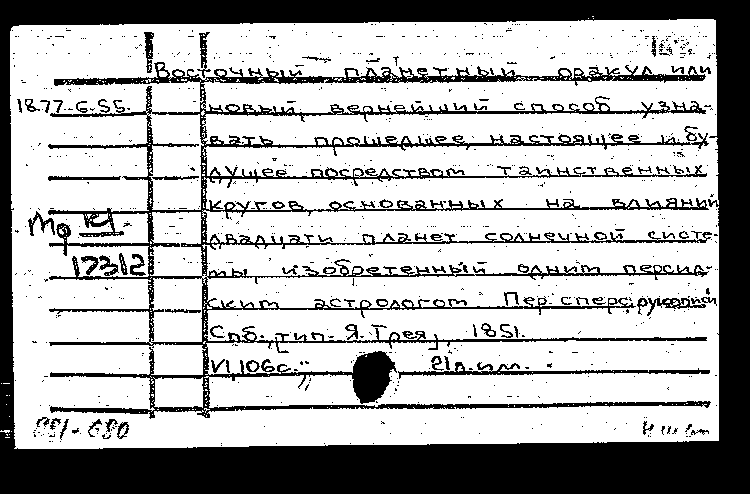 Восточный планетный оракул или
18.77-6.55.
новый, вернейший способ узна-
вать прошедшее, настоящее и бу-
дущее посредством таинственных
кругов, основанных на влиянии
двадцати планет солнечной систе-
мы, изобретенный одним персид-
ским астрологом Пер. с перс. рукописи
Спб., тип. Я. Трея, 1851.
VI, 106 с.; 21 л. илл.
17312
851-680